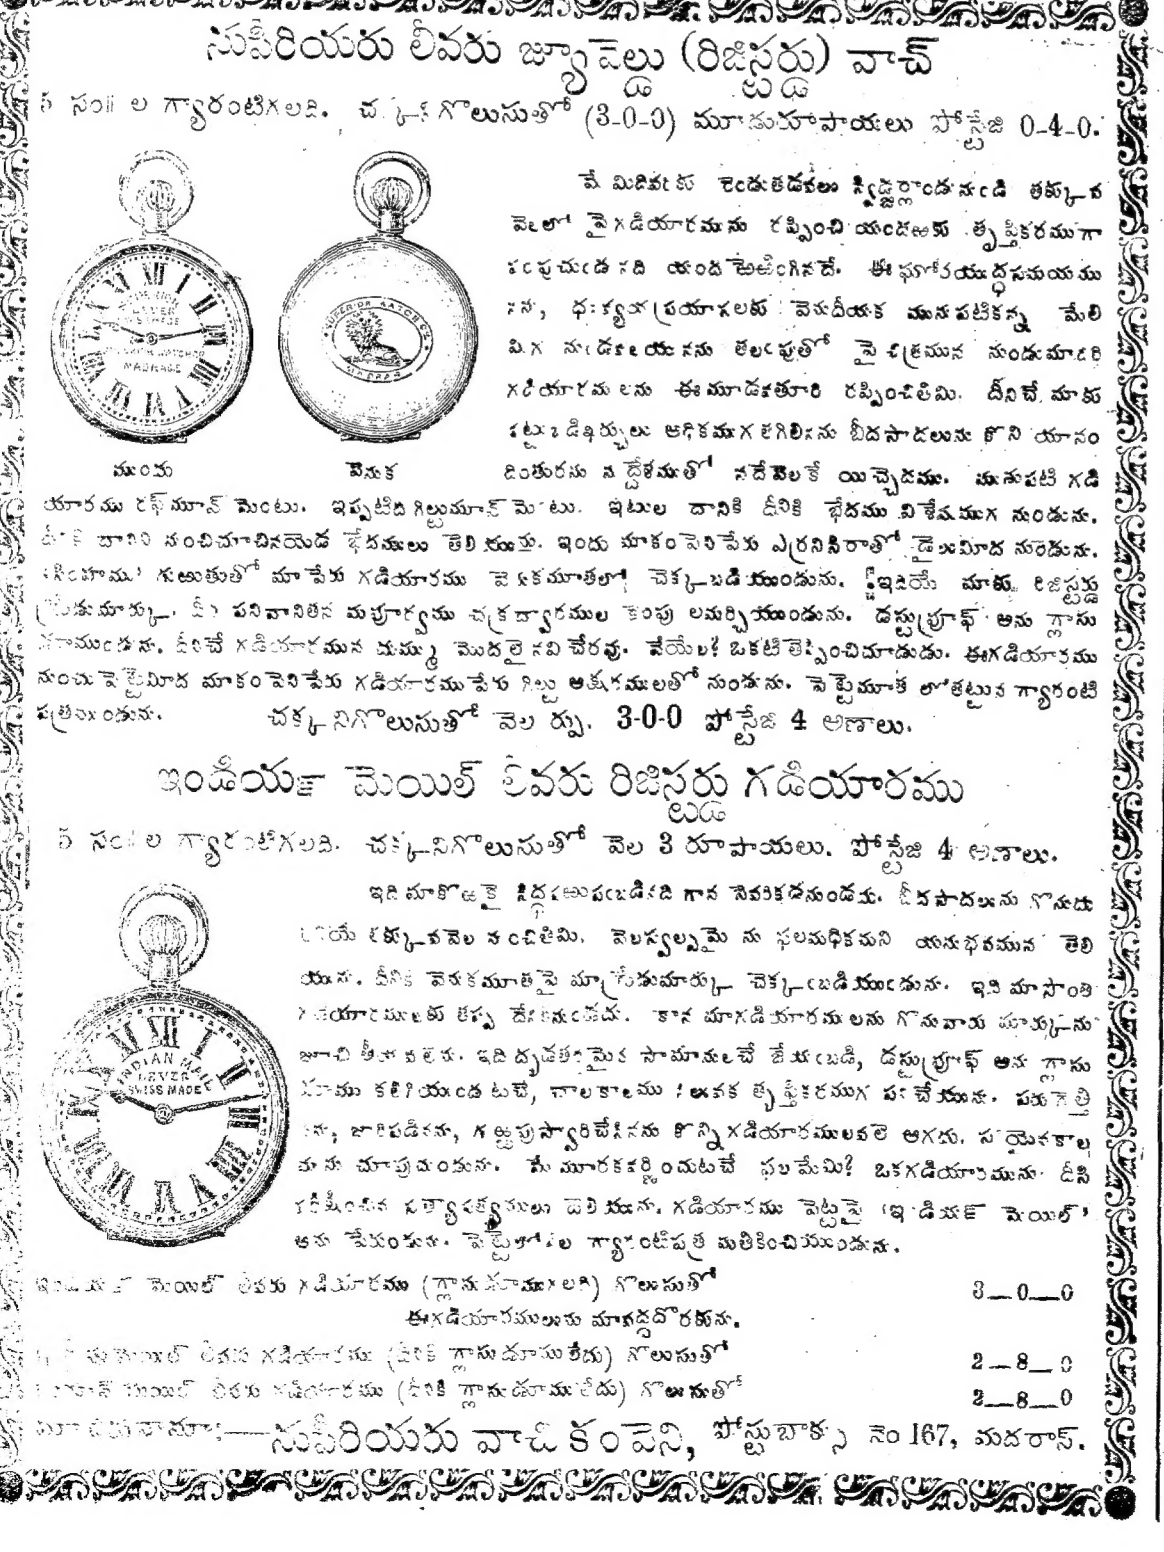 సుపీరియరు లీవరు జ్యూవెల్డు (రిజిస్టర్డు) వాచ్
5 సం॥ ల గ్యారంటిగలది. చక్కనిగొలుసుతో (3-0-0) మూడురూపాయలు పోస్టేజి 0-4-0.
మే మిదివఱకు రెండుతడవలు స్విడ్జర్లాండునుండి తక్కువ
వెలలో పైగడియారమును రప్పించి యందఱకు తృప్తికరముగా
నంపుచుండినది యంద ఱెఱింగినదే. ఈ ఘోరయుద్ధసమయము
ప్రయాసలకు వెనుదీయక మునుపటికన్న మేలి
తలంపుతో పై చిత్రమున నుండుమాదిరి
గడియారములను ఈ మూడవతూరి రప్పించితిమి. దీనిచే మాకు
కట్టుబడిఖర్చులు అధికముగ తగిలినను బీదసాదలును కొని యానం
దింతురను నుద్దేశముతో నదేవెలకే యిచ్చెదము. మునుపటి గడి
SUPERIOR WATCH CO.
MADRAS
LEVER
MADRASS
ముందు వెనుక
యారము రఫ్ మూన్ మెంటు. ఇప్పటిది గిల్టుమూన్ మెంటు. ఇటుల దానికి దీనికి భేదము విశేషముగ నుండును.
దీనిని దానిని నుంచిచూచినయెడ భేదములు తెలియును. ఇందు మాకంపెనిపేరు ఎర్రనిసిరాతో డైలుమీద నుండును.
'సింహము' గుఱుతుతో మా పేరు గడియారము వెనుకమూతలో చెక్కబడియుండును. ఇదియే మాకు రిజిస్టర్డు
ట్రేడుమార్కు. దీని పనివానితన మపూర్వము చక్రద్వారముల కెంపు లమర్చియుండును. డస్టుప్రూఫ్ అను గ్లాసు
డూముండును. దీనిచే గడియారమున దుమ్ము మొదలైనవి చేరవు. వేయేల? ఒకటితెప్పించిచూడుడు. ఈగడియారము
నుంచుపెట్టెమీద మాకంపెనిపేరు గడియారముపేరు గిల్టు అక్షరములతో నుండును. పెట్టెమూత లోతట్టున గ్యారంటి
పత్రికయుండును. చక్కనిగొలుసుతో వెల ర్పు. 3-0-0 పోస్టేజి 4 అణాలు.
ఇండియన్ మెయిల్ లీవరు రిజిస్టర్డు గడియారము
5 సం॥ల గ్యారంటిగలది. చక్కనిగొలుసుతో వెల 3 రూపాయలు. పోస్టేజి 4 అణాలు.
ఇది మాకొఱకై సిద్ధపఱుపఁబడినది గాన నెవరికడనుండదు. బీదసాదలును గొనుదు
తక్కువవెల నుంచితిమి. వెలస్వల్పమైనను ఫలమధికమని యనుభవమున తెలి
యును. దీనికి వెనుకమూతపై మా ట్రేడుమార్కు చెక్కఁబడియుండును. ఇది మాసొంత
గడియారములకు తప్ప వేరేనుండదు. కాన మాగడియారములను గొనువారు మార్కును
జూచి తీయవలెను. ఇది దృఢతరమైన సామానులచే జేయఁబడి, డస్టుప్రూఫ్ అను గ్లాసు
డూము కలిగియుండుటచే, చాలకాలము నిలువక తృప్తికరముగ పనిచేయును. పరుగెత్తి
నను, జారిపడినను, గుఱ్ఱపుస్వారిచేసినను కొన్నిగడియారములవలె ఆగదు. సరియైనకాల
మును చూపుచుండును. మే మూరకవర్ణించుటచే ఫలమేమి? ఒకగడియారమును దీసి
పరీక్షించిన సత్యాసత్యములు దెలియును. గడియారము పెట్టెపై 'ఇండియన్ మెయిల్'
అను పేరుండును. పెట్టెలోపల గ్యారంటిపత్ర మతికించియుండును.
INDIAN MAIL
LEVER
SWISS MADE
ఇండియన్ మెయిల్ లీవరు గడియారము (గ్లాసుడూముగలది) గొలుసుతో 3—0—0
ఈగడియారములును మావద్దదొరకును.
మెయిల్ లీవరు గడియారము (దీనికి గ్లాసుడూములేదు) గొలుసుతో 2—8—0
మెయిల్ లీవరు గడియారము (దీనికి గ్లాసుడూములేదు) గొలుసుతో 2—8—0
మా చిరునామా:—సుపీరియరు వాచి కంపెని, పోస్టుబాక్సు నెం 167, మదరాస్.